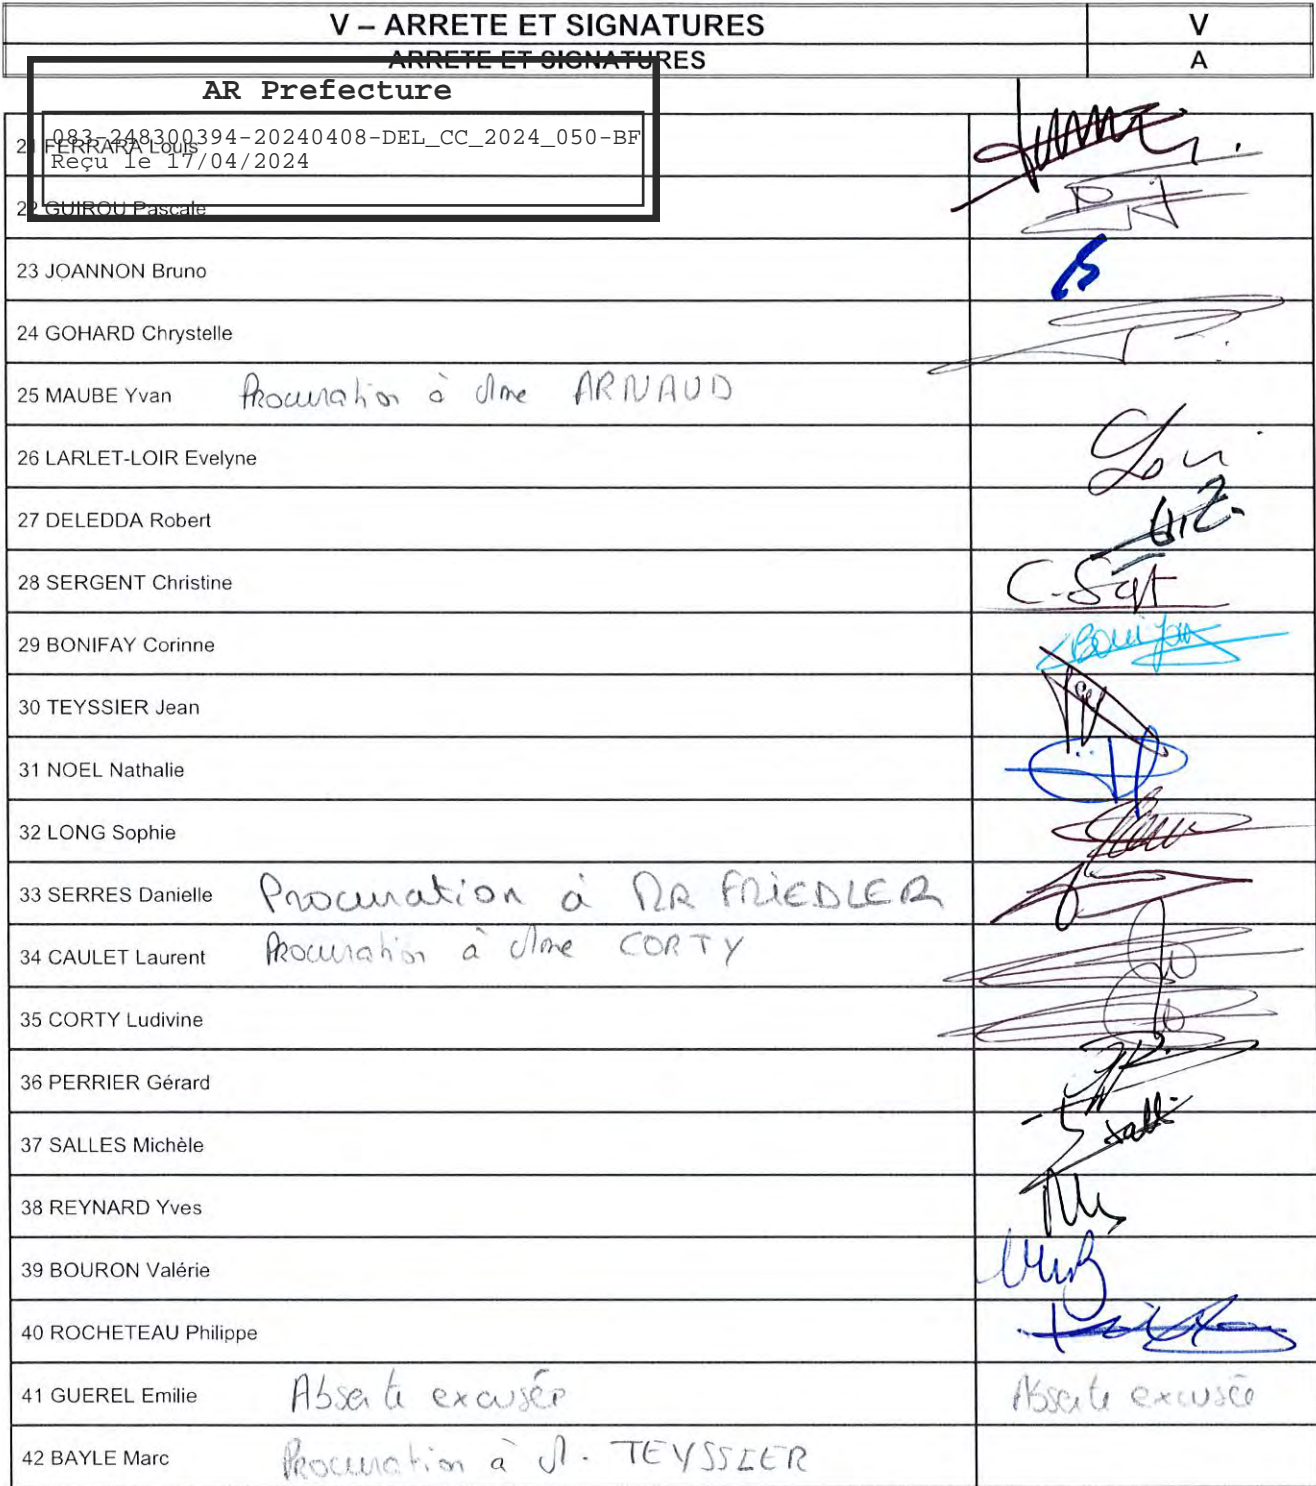 V – ARRETE ET SIGNATURES V
ARRETE ET SIGNATURES A
AR Prefecture
083-248300394-20240408-DEL_CC_2024_050-BF
Reçu le 17/04/2024
21 FERRARA Louis
22 GUIROU Pascale
23 JOANNON Bruno
24 GOHARD Chrystelle
25 MAUBE Yvan Procuration à Mme ARNAUD
26 LARLET-LOIR Evelyne
27 DELEDDA Robert
28 SERGENT Christine C. Sgt
29 BONIFAY Corinne Bonifay
30 TEYSSIER Jean
31 NOEL Nathalie
32 LONG Sophie
33 SERRES Danielle Procuration à MR FRIEDLER
34 CAULET Laurent Procuration à Mme CORTY
35 CORTY Ludivine
36 PERRIER Gérard
37 SALLES Michèle
38 REYNARD Yves
39 BOURON Valérie
40 ROCHETEAU Philippe
41 GUEREL Emilie Absente excusée Absente excusée
42 BAYLE Marc Procuration à M. TEYSSIER